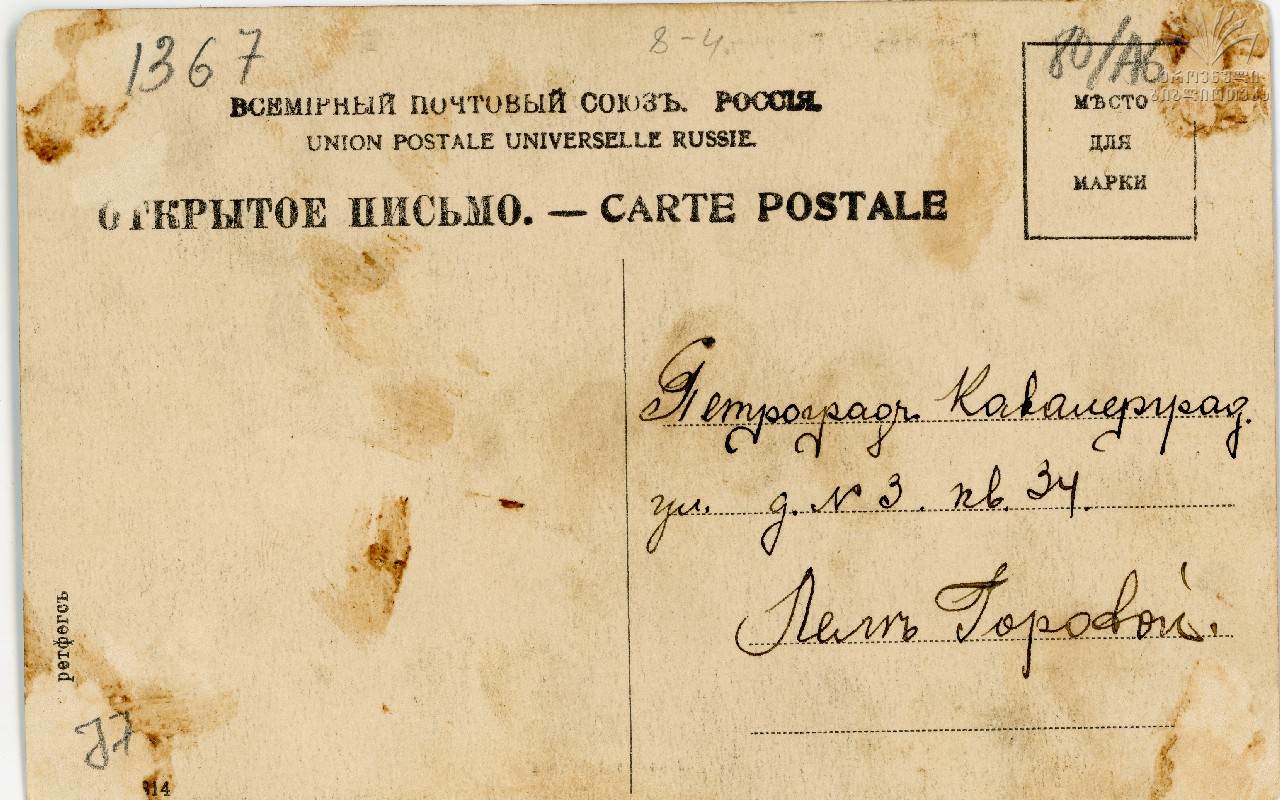 1367
8-4.
80/А6
ეროვნული
ბიბლიოთეკა
ВСЕМІРНЫЙ ПОЧТОВЫЙ СОЮЗЪ. РОССІЯ.
UNION POSTALE UNIVERSELLE RUSSIE.
ОТКРЫТОЕ ПИСЬМО. — CARTE POSTALE
МѢСТО
ДЛЯ
МАРКИ
Петроградъ Кавалерград.
ул. д. № 3. кв. 34.
Горовой.
314